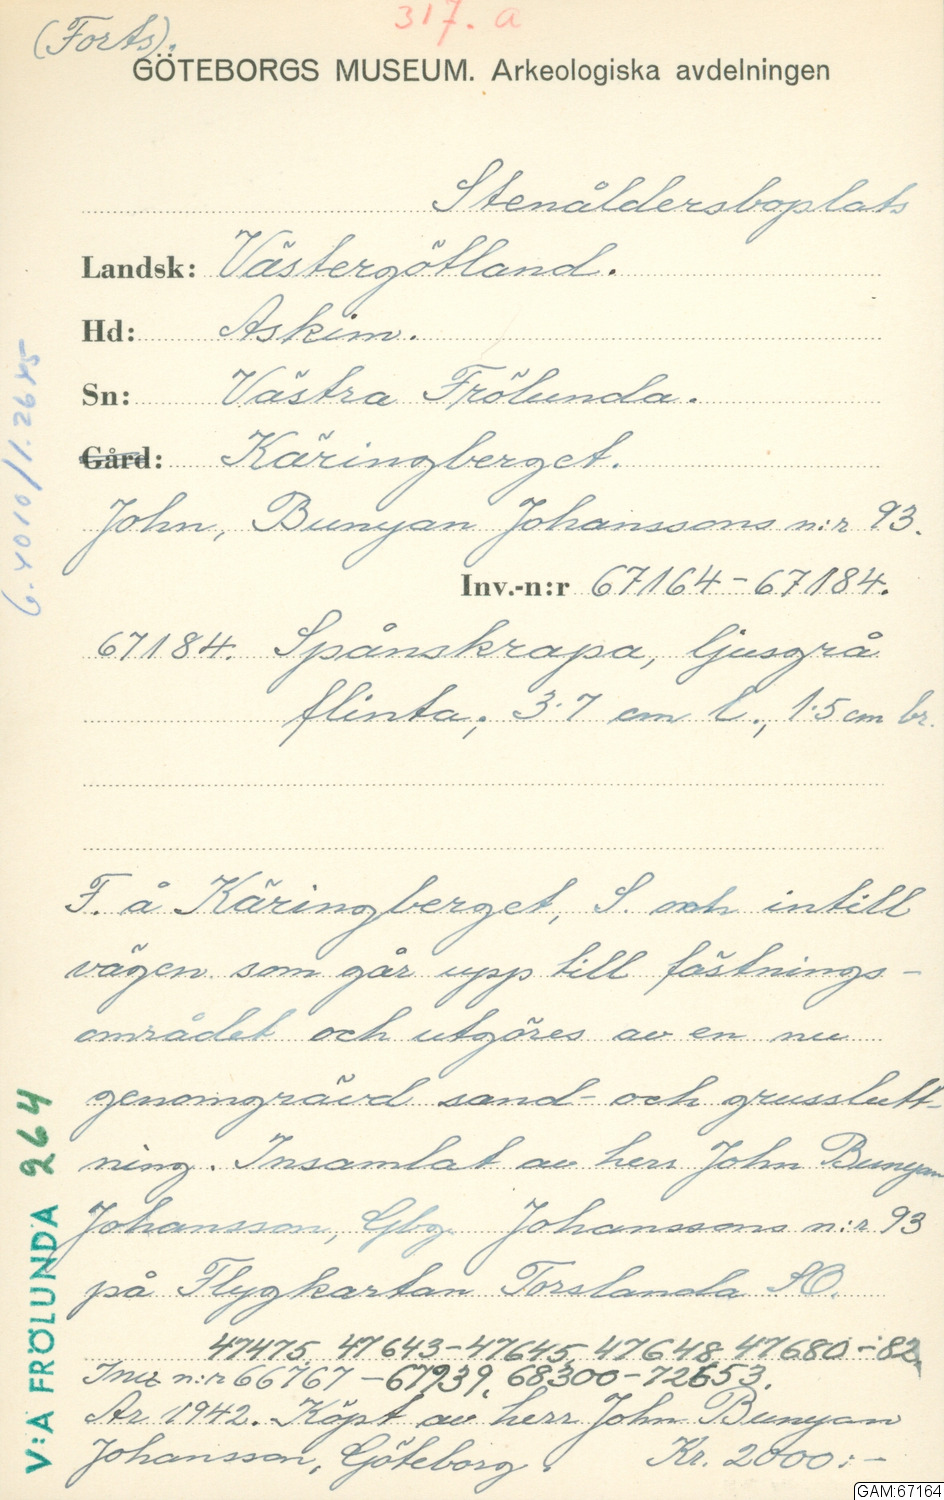 (Forts).
317. a
GÖTEBORGS MUSEUM. Arkeologiska avdelningen
Stenåldersboplats
Landsk: Västergötland.
Hd: Askim.
Sn: Västra Frölunda.
Gård: Käringberget.
John, Bunyan Johanssons n:r 93.
Inv.-n:r 67164-67184.
67184. Spånskrapa, ljusgrå
flinta, 3.7 cm l., 1.5 cm br.
F. å Käringberget, S. och intill
vägen som går upp till fästnings-
området och utgöres av en nu
genomgrävd sand- och grusslutt-
ning. Insamlat av herr John Bunyan
Johansson, Gbg. Johanssons n:r 93
på Flygkartan Torslanda SO.
47475, 47643-47645, 47648, 47680-82,
Inv n:r 66767-67939, 68300-72653.
År 1942. Köpt av herr John Bunyan
Johansson, Göteborg. Kr. 2000:-
V:A FRÖLUNDA 264
GAM:67164